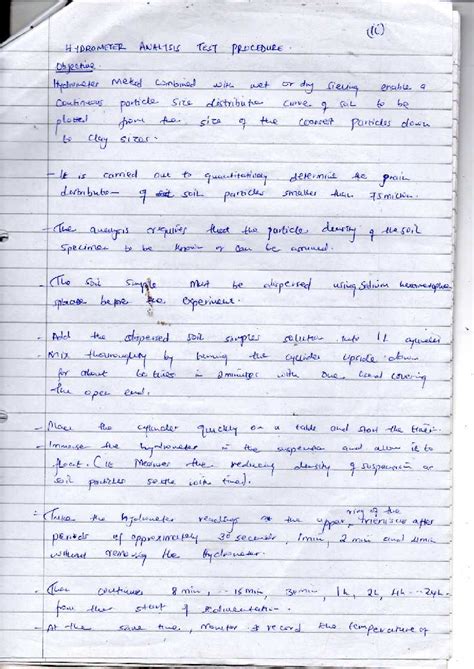 (1C)
HYDROMETER ANALYSIS TEST PROCEDURE.
Objective.
Hydrometer Method combined with wet or dry sieving enable a
Continuous particle size distribution curve of soil to be
plotted from the size of the coarset particles down
to clay sizes.
- It is carried out to quantitatively determine the grain
distribution of soil particles smaller than 75
- The analysis requires that the particle density of the soil
specimen to be known or can be assumed.
- The soil sample must be dispersed using Sodium
before the experiment.
- Add the dispersed soil samples solution into 1L cylinder
- Mix thoroughly by turning the cylinder upside down
for about in 2 minutes with one hand covering
the open end.
- Place the cylinder quickly on a table and start the
- Immerse the hydrometer in the suspension and allow it to
float. (ie Measures the reducing density of suspension as
soil particles settle with time).
- Take the hydrometer readings the upper ring of the meniscus after
periods of approximately 30 seconds, 1min, 2 min and 4min
without removing the hydrometer.
- Then continues 8 min, -- 15 min, 30 min, 1h, 2h, 4h -- 24h.
from the start of sedimentation.
- At the same time, monitor & record the temperature of